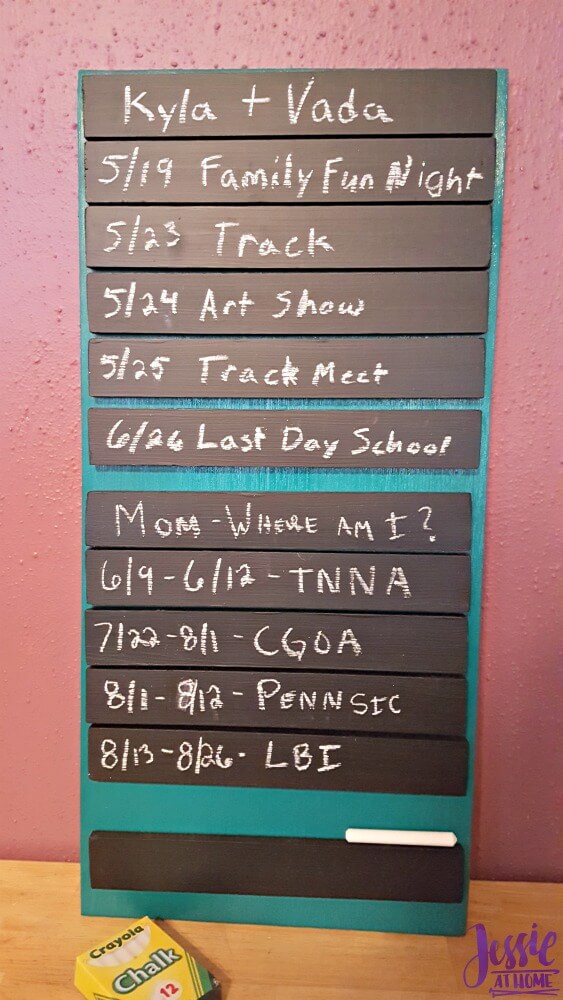 Kyla + Vada
5/19 Family Fun Night
5/23 Track
5/24 Art Show
5/25 Track Meet
6/26 Last Day School
MOM - WHERE AM I?
6/9 - 6/12 - TNNA
7/22 - 8/1 - CGOA
8/1 - 8/12 - PENNSIC
8/13 - 8/26 - LBI
Crayola
Chalk
12
Jessie
AT HOME